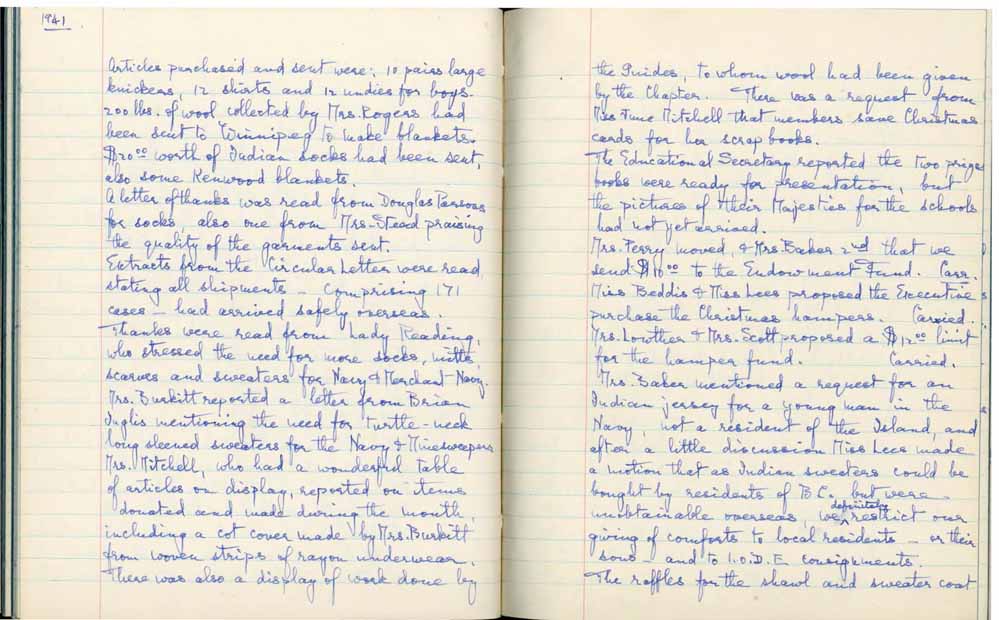 1941
Articles purchased and sent were: 10 pairs large
knickers, 12 shirts and 12 undies for boys.
200 lbs. of wool collected by Mrs. Rogers had
been sent to Winnipeg to make blankets.
$20.00 worth of Indian socks had been sent,
also some Kenwood blankets.
A letter of thanks was read from Douglas Parsons
for socks, also one from Mrs. Stead praising
the quality of the garments sent.
Extracts from the Circular Letter were read,
stating all shipments - comprising 171
cases - had arrived safely overseas.
Thanks were read from Lady Reading,
who stressed the need for more socks, mitts,
scarves and sweaters for Navy & Merchant Navy.
Mrs. Burkitt reported a letter from Brian
Inglis mentioning the need for turtle-neck
long sleeved sweaters for the Navy & Minesweepers
Mrs. Mitchell, who had a wonderful table
of articles on display, reported on items
donated and made during the month,
including a cot cover made by Mrs. Burkitt
from woven strips of rayon underwear.
There was also a display of work done by
the Guides, to whom wool had been given
by the Chapter. There was a request from
Miss June Mitchell that members save Christmas
cards for her scrap books.
The Educational Secretary reported the two prize
books were ready for presentation, but
the pictures of their Majesties for the schools
had not yet arrived.
Mrs. Perry moved, & Mrs. Baker 2nd that we
send $10.00 to the Endowment Fund. Carr.
Miss Beddis & Miss Lees proposed the Executive
purchase the Christmas hampers. Carried.
Mrs. Lowther & Mrs. Scott proposed a $12.00 limit
for the hamper fund. Carried.
Mrs. Baker mentioned a request for an
Indian jersey for a young man in the
Navy, not a resident of the Island, and
after a little discussion Miss Lees made
a motion that as Indian sweaters could be
bought by residents of B.C., but were
unobtainable overseas, we definitely restrict our
giving of comforts to local residents - or their
sons - and to I.O.D.E consignments.
The raffles for the shawl and sweater coat